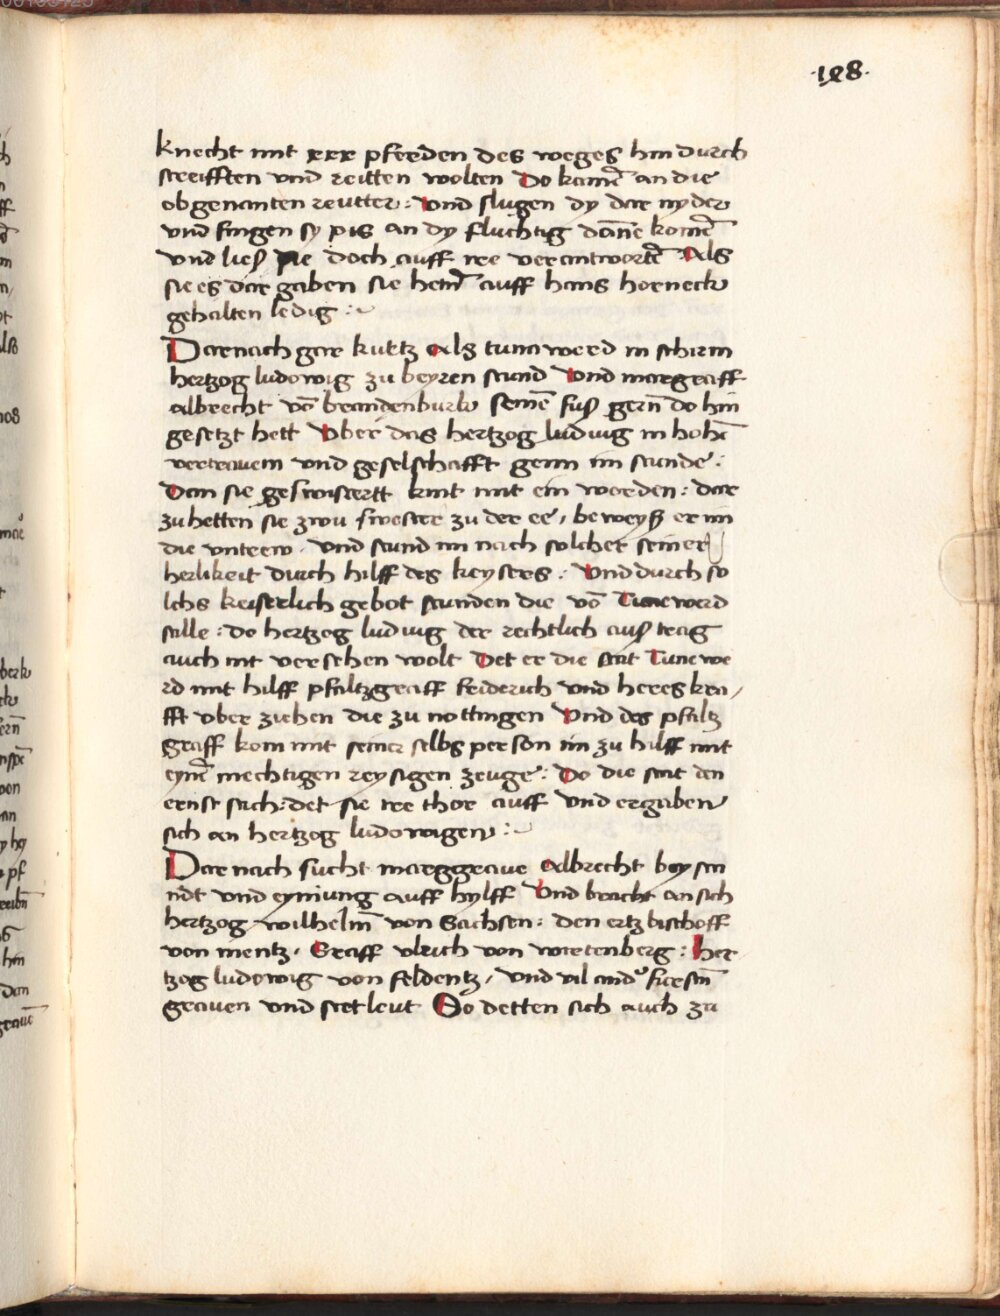 ·198·
knecht mit xxx pferden des weges hin durch
streifften vnd reitten wolten Do kamē an die
obgenanten reutter : Vnd slugen dy dar nyder
vnd fingen sy pis an dy fluchtig dānē komē
vnd lieſ sie doch auff ire verantwortē Als
sie es dar gaben sie auff hans horneck
gehalten ledig :~
Darnach gar kurtz Als tunawerd in schirm
hertzog ludowig zu beyren stund Vnd margraff
albrecht vō brandenburk seinē fuſ gern do hin
gesetzt hett Vber das hertzog ludwig in hohē
vertrauem vnd geselschafft genn im stunde :
Dan sie geswistertt kint mit ein worden : dar
zu hetten sie zwu swester zu der ee , beweyß er im
die vntrew . vnd stund im nach solcher seiner
herlikeit durch hilff des keysers : Vnd durch so
lchs keiserlich gebot stunden die vō Tunewerd
stille : do hertzog ludwig der rechtlich auſ trag
auch nit versehen wolt Det er die stat Tunewe
rd mit hilff pfaltzgraff friderich vnd heres kra ,
fft vber ziehen die zu nottingen Vnd des pfaltz
graff kom mit seiner selbs person im zu hilff mit
eynē mechtigen reysigen zeuge : Do die stat den
ernst sach : det sie ire thor auff Vnd ergaben
sich an hertzog ludowigen :~
Dar nach sucht marggraue Albrecht boy stn
ndt vnd eyniung auff hylff Vnd bracht an sich
hertzog wilhelm̄ von Sachsen : den ertzbischoff
von mentz . Graff vlrich von wirtenberg : Her
tzog ludowig von feldentz , vnd vil furstn̄
grauen vnd stetleut So detten sich auch zu